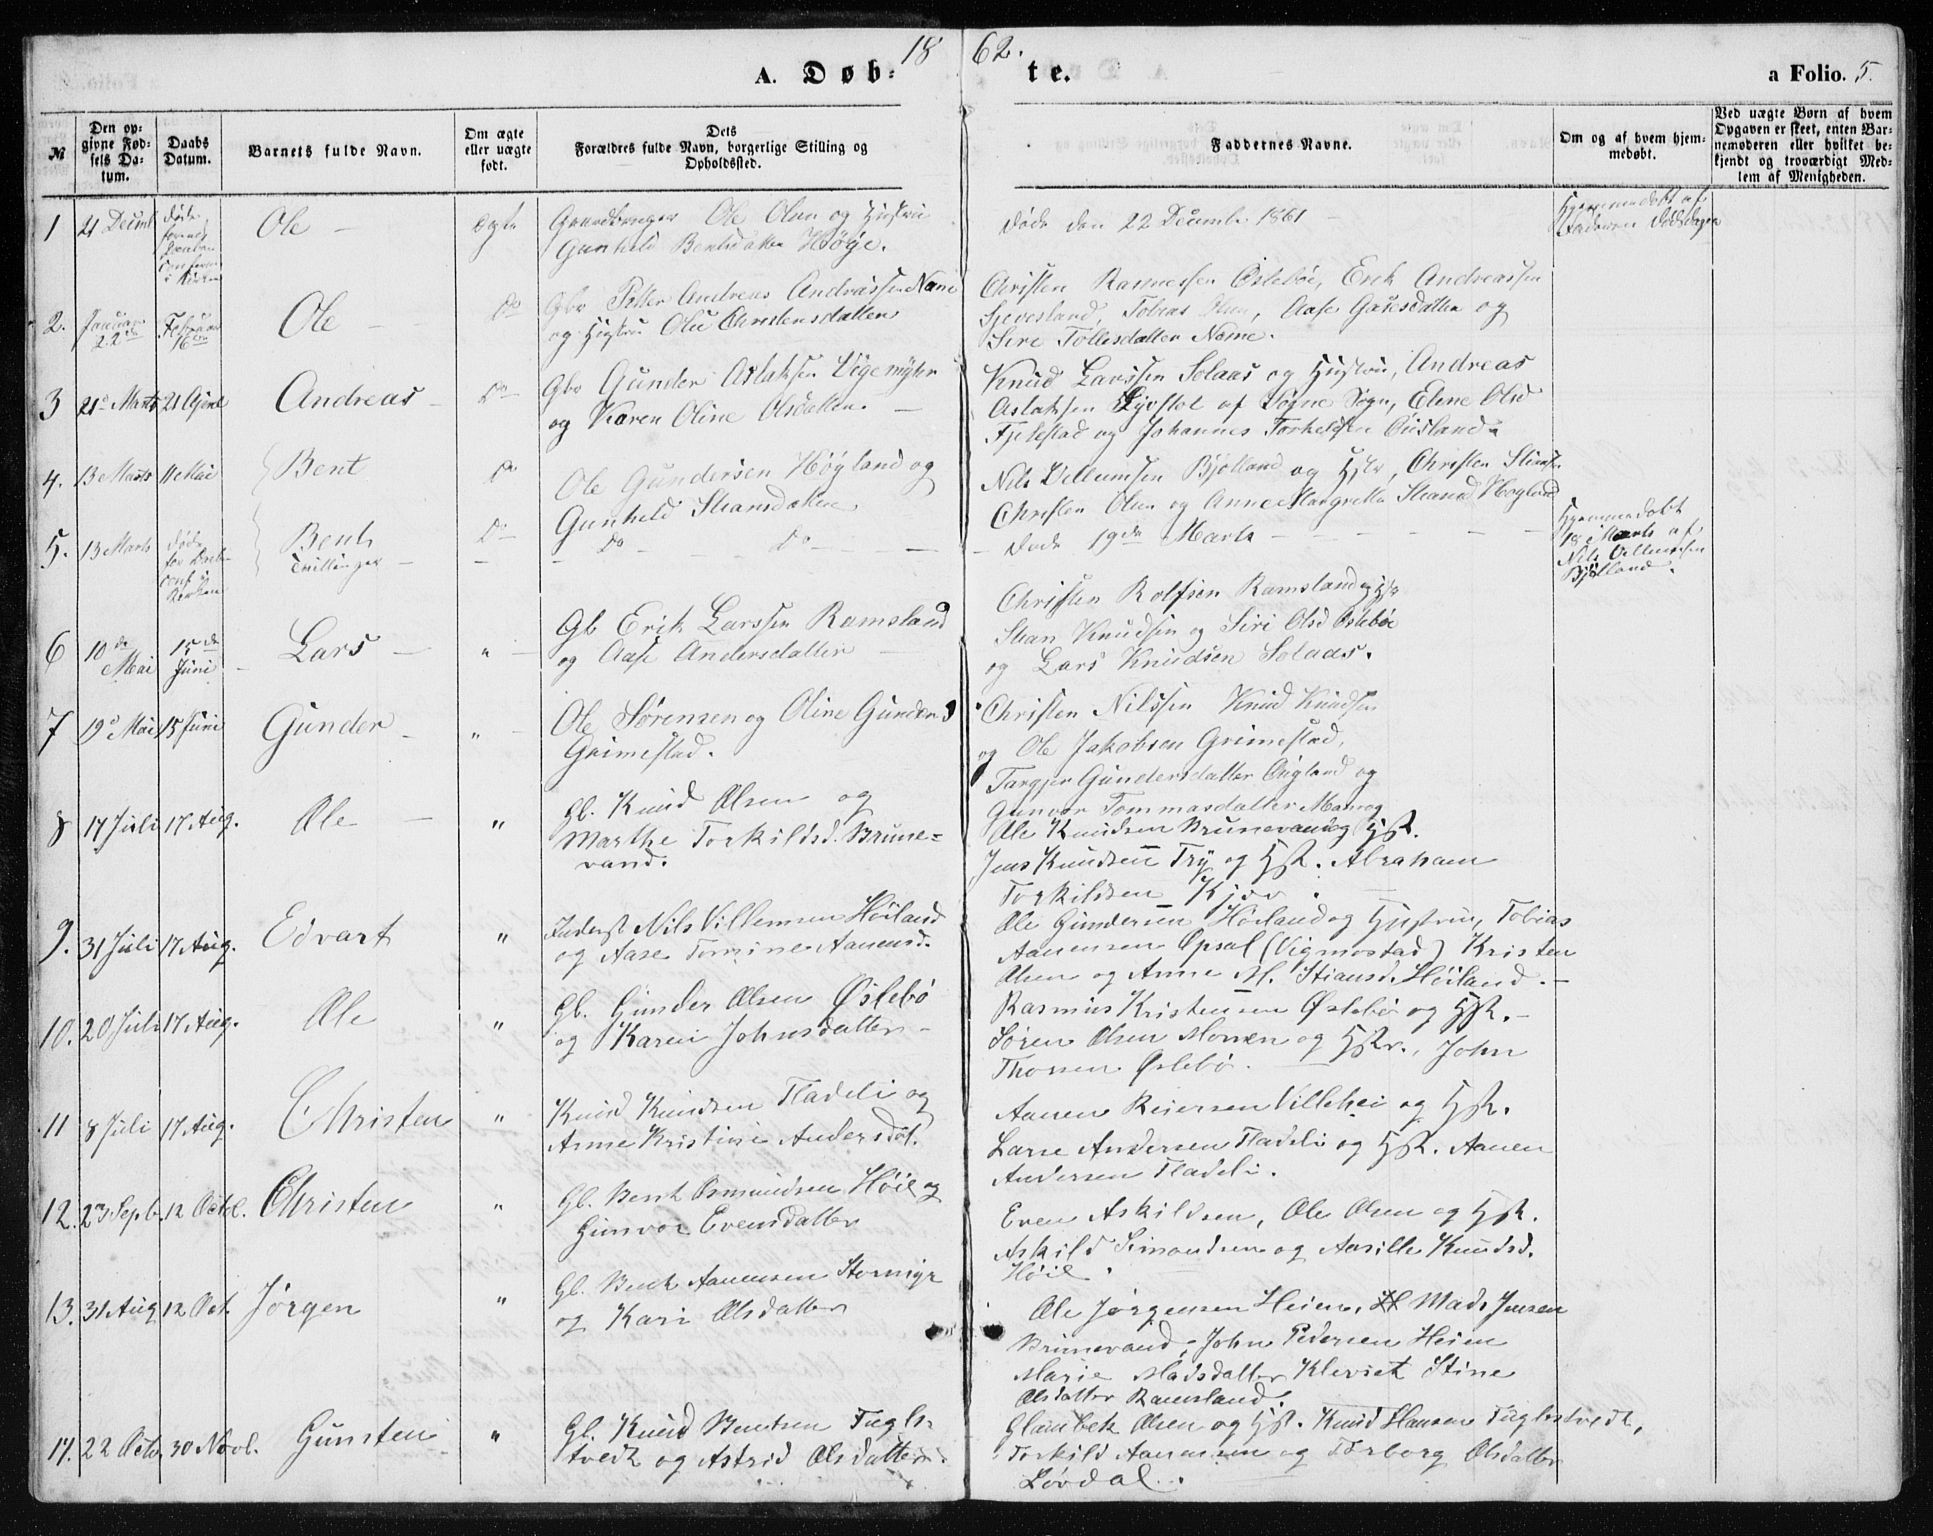 1862.
A. Døb-te.
a Folio. 5.
№
Den op-
givne Fød-
sels Da-
tum.
Daabs
Datum.
Barnets fulde Navn.
Om ægte
eller uægte
født.
Dets
Forældres fulde Navn, borgerlige Stilling og
Opholdssted.
Faddernes Navne.
Om og af hvem hjem-
medøbt.
Ved uægte Børn af hvem
Opgaven er skeet, enten Bar-
nemoderen eller hvilket be-
kjendt og troværdigt Med-
lem af Menigheden.
1 21 Decembr Døde Ole – ægte Gaardbruger Ole Olsen og Hustru
Gunhild Bentsdatter Høÿe.
Døde den 22 Decembr 1861 –
Hjemmedøbt af
Faderen Dødsdagen
2. Januar 22de Februar 16de Ole – Do Gbr Peter Andreas Andreassen Nome
og Hustru Olu Christensdatter
Christen Rasmussen Ösleböe, Erik Andreassen
Sjevesland, Tobias Olsen, Aase Gausdatter og
Sire Tollesdatter Nome.
3 21de Marts 21 April Andreas – Do Gbr Gunder Aslaksen Vigemÿhr
og Karen Oline Olsdatter. –
Knud Larssen Solaas og Hustru, Andreas
Aslaksen Lÿvstol af Søgne Sogn, Elene Olsd
Fjelestad og Johannes Torkeldsen Öusland.
4. 13 Marts 11 Mai Bent Do Ole Gundersen Høÿland og
Gunhild Stiansdatter
Nils Vellumsen Bjolland og Hstr, Christen Stiansen
Christen Olsen og Anne Margrethe Stiansd Høgland
5. 13 Marts Døde Bent Do Do – – – Do – – –
Tvillinger –
Døde 19de Marts – – – –
Hjemmedøbt
18 Marts af
Nils Vellumsen
Bjolland.
6 10de Mai 15de Juni Lars – " Gb Erik Larssen Ramsland
og Aase Andersdatter –
Christen Rolfsen Ramsland og Hstr
Stian Knudsen og Siri Olsd Öslebøe
og Lars Knudsen Solaas.
7 19de Mai 15 Juni Gunder – " Ole Sörensen og Oline Gunders
Grimestad.
Christen Nilssen Knud Knudsen
og Ole Jakobsen Grimestad,
Targjer Gundersdatter Öugland og
Gunvor Tommasdatter
8 17 Juli 17 Aug. Ole – " Gb. Knud Olsen og
Marthe Torkildsd. Brune=
vand.
Ole Knudsen Brunevand og Hst.
Jens Knudsen Trÿ og Hst. Abraham
Torkildsen Kjær.
9. 31 Juli 17 Aug. Edvart " Inderst Nils Villemsen Höiland
og Aase Tomine Aanensd.
Ole Gundersen Höiland og Hustru, Tobias
Aanensen Opsal (Vigmostad) Kristen
Olsen og Anne M. Stiansd. Höiland. –
10. 20 Juli 17 Aug. Ole " Gb. Gunder Olsen Øslebö
og Karen Johnsdatter –
Rasmus Kristensen Øslebö og Hst. –
Sören Olsen Monen og Hstr., John
Thorsen Øslebö.
11 8 Juli 17 Aug. Christen " Knud Knudsen Fladeli og
Anne Kristine Andersdat.
Aanen Reiersen Villehei og Hst.
Larse Andersen Fladeli og Hst. Aanen
Andersen Fladeli.
12. 23 Septb. 12 Octo. Christen " Gb. Bent Osmundsen Höie og
Gunvor Evensdatter
Even Askildsen, Ole Olsen og Hst.
Askild Simondsen og Aasille Knudsd.
Höie.
13. 31 Aug 12 Oct Jörgen " Gb. Bent Aanensen Stormÿr
og Kari Olsdatter
Ole Jörgensen Heien, Mads Jensen
Brunevand, John Pedersen Heien
Marie Madsdatter Kleveset Stine
Olsdatter Ramsland.
14. 22 Octo 30 Novb. Gunsten " Gb. Knud Bentsen Fugls-
tvedt og Astrid Olsdatter.
Glambek Olsen og Hst. Knud Hansen Fuglestvedt,
Torkild Aanensen og Torborg Olsdatter
Lövdal.